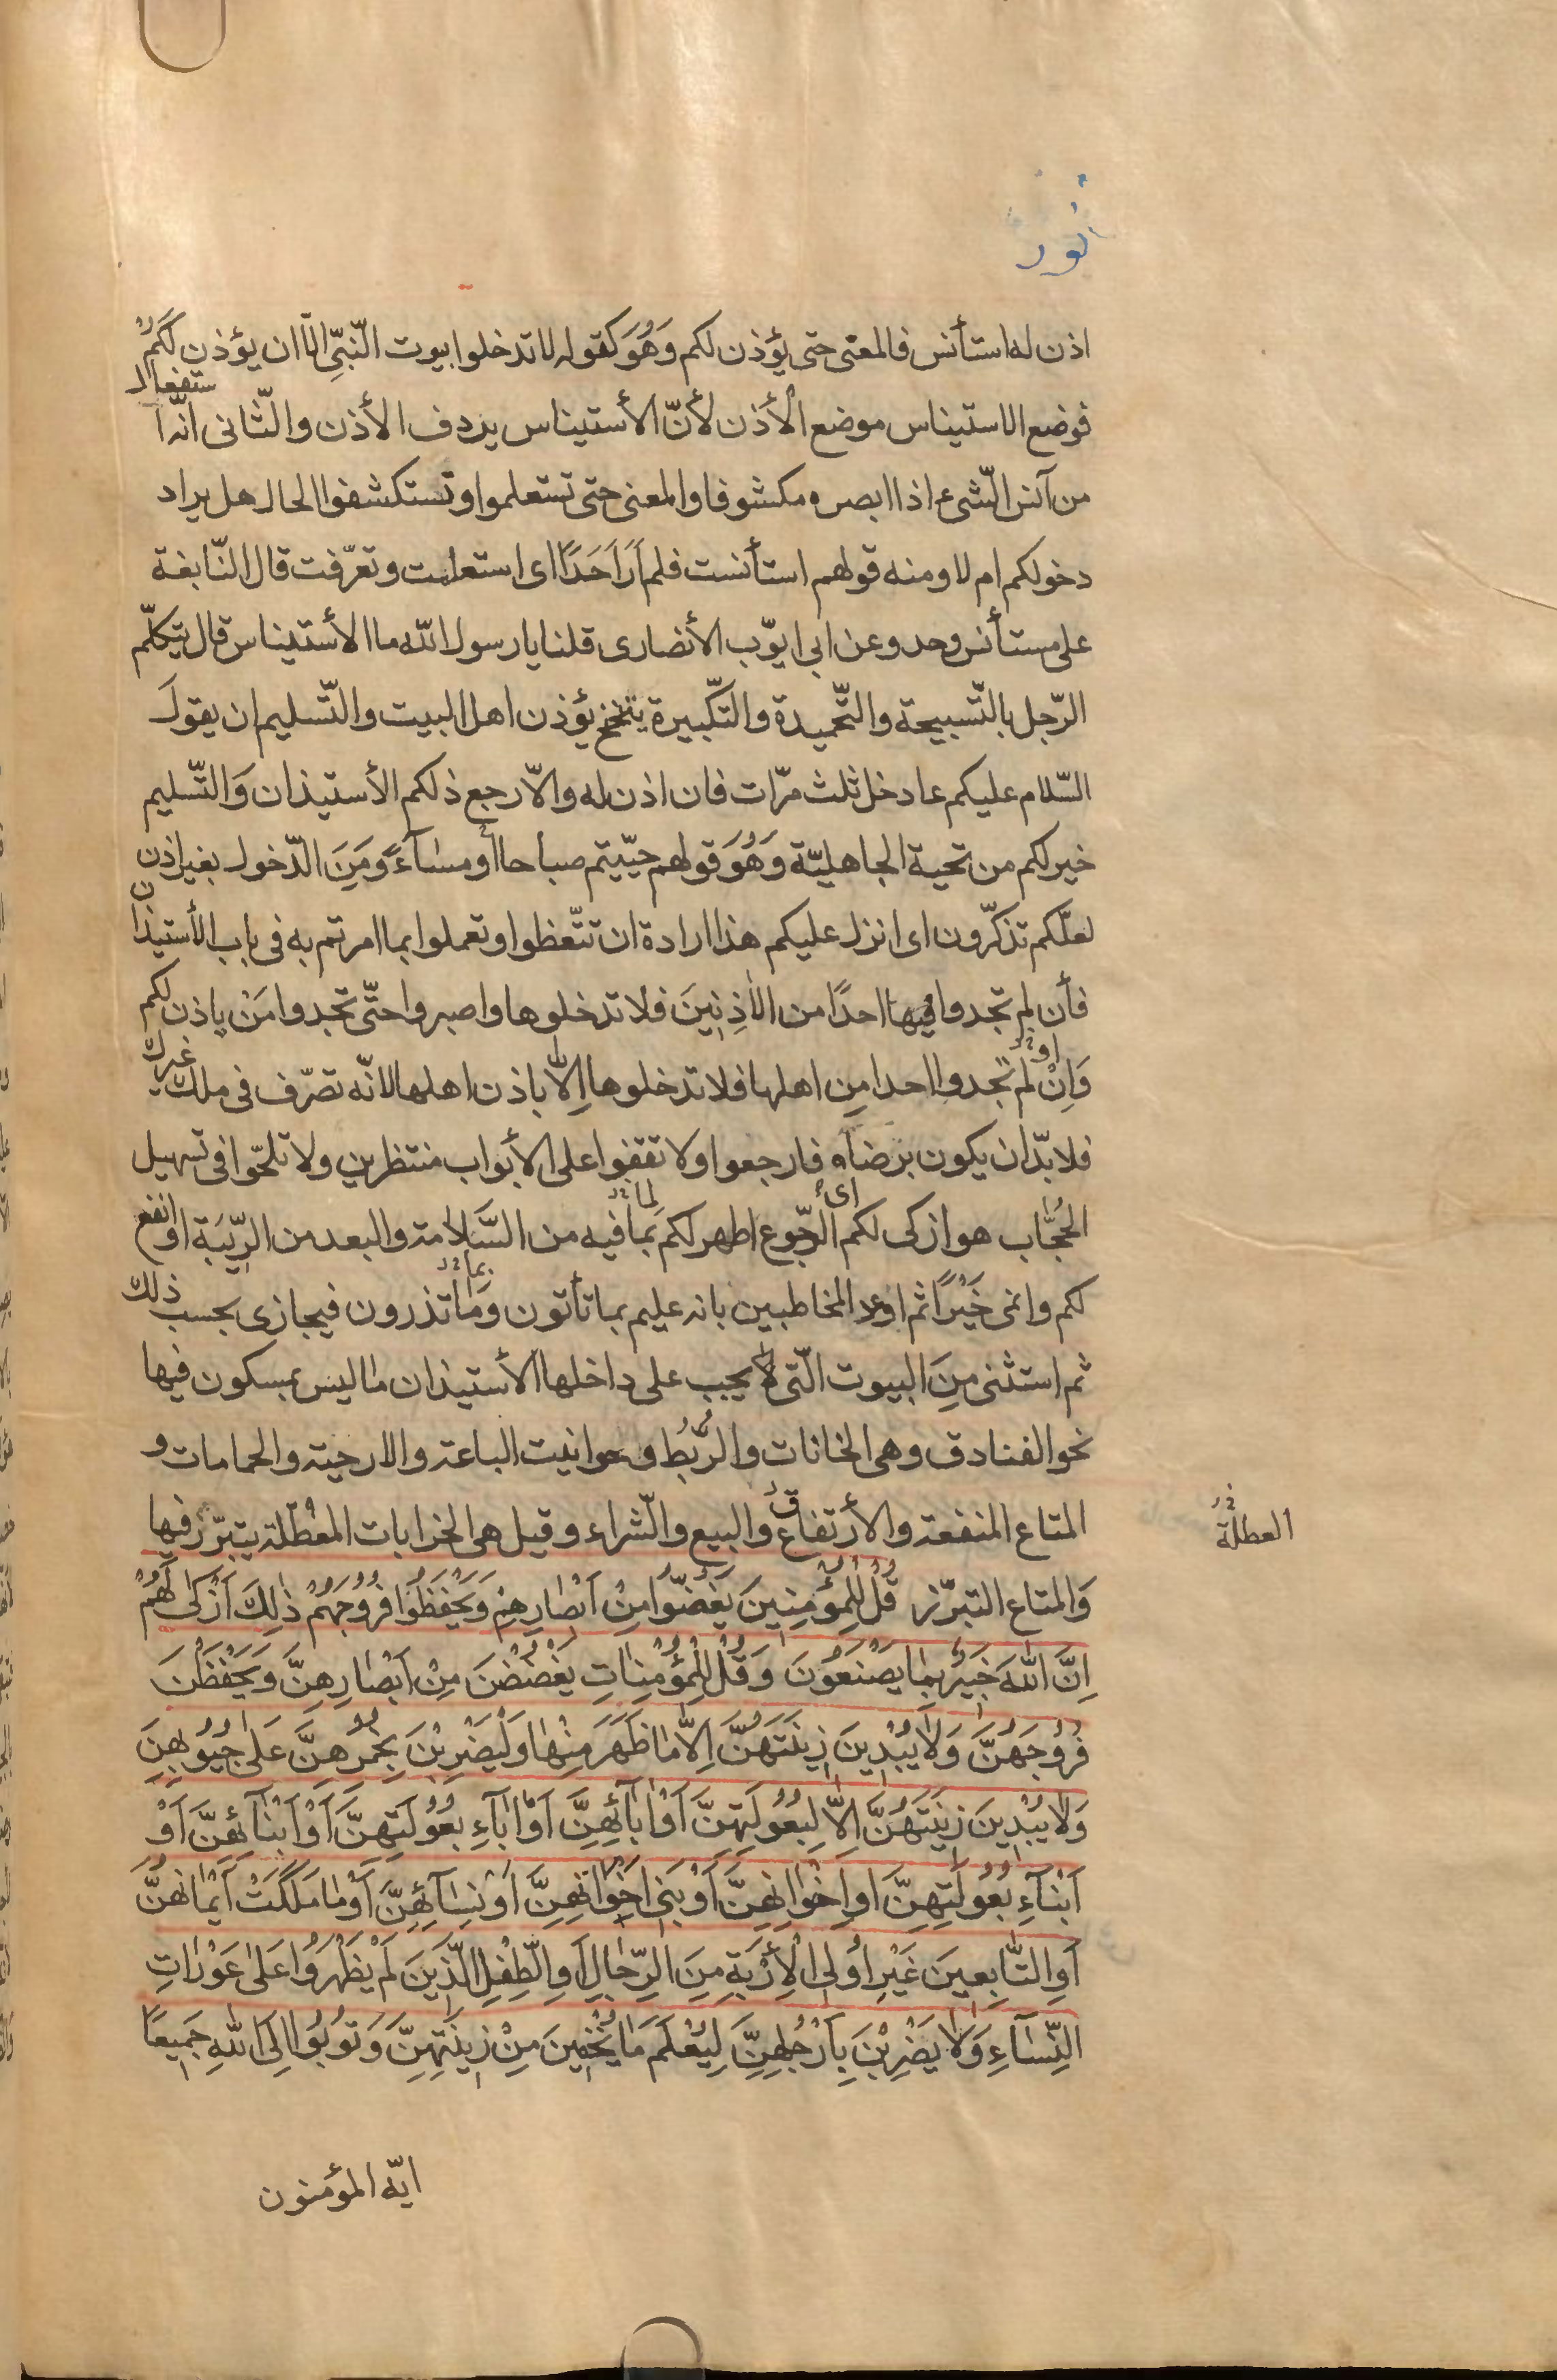 نور
اذن له استأنس فالمعنى حتى يؤذن لكم وَهُوَ كقوله لا تدخلوا بيوت النّبِّى الّا ان يؤذن لَكَمُ
فوضع الاستيناس موضع الأذن لأنّ الأستيناس يردف الأذن والثّانى انّه استفعال
من آنس الشّىء اذا ابصره مكشوفا والمعنى حتى تستعلموا وتستكشفوا الحال هل يراد
دخولكم ام لا ومنه قولهم استأنست فلم اَرَ اَحَدًا اى استعلمت وتعرّفت قال النّابغة
على مستأنس وحد وعن ابى ايّوب الأنصارى قلنا يا رسول الله ما الأستيناس قال يتكلّم
الرّجل بالتّسبيحة والتّحميدة والتكّبيرة يتنحنح يؤذن اهل البيت والتّسليم ان يقول
السّلام عليكم ءادخل ثلث مرّات فان اذن له والّا رجع ذلكم الأستيذان وَالتّسليم
خير لكم من تحية الجاهليّة وَهُوَ قولهم حيّيتم صباحا أو مساءً وَمَنِ الدّخول بغير اذن
لعلّكم تذكّرون اى انزل عليكم هذا ارادة ان تتّعظوا وتعملوا بما امرتم به فى باب الأستيذان
فأن لم تجدوا فيها احدًا من الأذِنِينَ فلا تدخلوها واصبروا حتّى تجدوا مَنْ ياذن لكم
او
وَاِنْ لم تجدوا احدا مِن اهلها فلا تدخلوها اِلّا باذن اهلها لانّه تصرّف فى ملك غيرك
فلا بدّ ان يكون برضاه فارجعوا ولا تقفوا على الأبواب منتظرين ولا تلحّوا فى تسهيل
الحُجّاب هو ازكى لكم اى الرّجوع اطهر لكم بما لما فيه من السَّلامة والبعد من الرِّيبَة او انفع
لكم وانمى خَيْرًا ثم اوعد المخاطبين بانه عليم بما تأتون وَمَا بما تذرون فيجازى بحسب ذلك
ثم استثنى مِنَ البيوت الّتى لا يجب على داخلها الأستيذان ما ليس بمسكون فيها
نحو الفنادق وهى الخانات والرُّبُط وحوانيت الباعة والارحية والحمامات و
المتاع المنفعة والأرتفاق والبيع والشّراء وقيل هى الخرابات المعُطّلة يتبرّز فيها
العطلة
وَالمتاع التبرّز قُلْ لِلْمُؤمِنِينَ يَغُضّوُا مِنْ اَبْصٰارِهِمْ وَيَحْفَظُوُا فُرُوُجَهُمْ ذٰلِكَ اَزْكىٰ لَهُمْ
اِنَّ اللهَ خَبٖيرٌ بِمٰا يَصْنَعُوُنَ وَقُلْ لِلْمُؤمِنٰاتِ يَغْضُضْنَ مِنْ اَبْصٰارِهِنَّ وَيَحْفَظْنَ
فُرُوُجَهُنَّ وَلٰا يُبْدٖينَ زٖينَتَهُنَّ اِلّٰا مٰا ظَهَرَ مِنْهٰا وَلْيَضْرِبْنَ بِخُمُرِهِنَّ عَلىٰ جُيُوُبِهِنَّ
وَلٰا يُبْدٖينَ زٖينَتَهُنَّ اِلّٰا لِبُعُوُلَتِهِنَّ اَوْ اٰبٰآئِهِنَّ اَوْ اٰبٰآءِ بُعُوُلَتِهِنَّ اَوْ اَبْنٰآئِهِنَّ اَوْ
اَبْنٰآءِ بُعُوُلَتِهِنَّ اَوِ اِخْوٰانِهِنَّ اَوْ بَنٖى اِخْوٰانِهِنَّ اَوْ نِسٰآئِهِنَّ اَوْ مٰا مَلَكَتْ اَيْمٰانُهُنَّ
اَوِ التّٰابِعٖينَ غَيْرِ اُولِى الْأِرْبَةِ مِنَ الرِّجٰالِ اَوِ الطِّفْلِ الَّذٖينَ لَمْ يَظْهَرُوُا عَلىٰ عَوْرٰاتِ
النِّسٰآءِ وَلٰا يَضْرِبْنَ بِاَرْجُلِهِنَّ لِيُعْلَمَ مٰا يُخْفٖينَ مِنْ زٖينَتِهِنَّ وَتُوُبُوُا اِلَى اللهِ جَمٖيعًا
ايّه المؤمنون